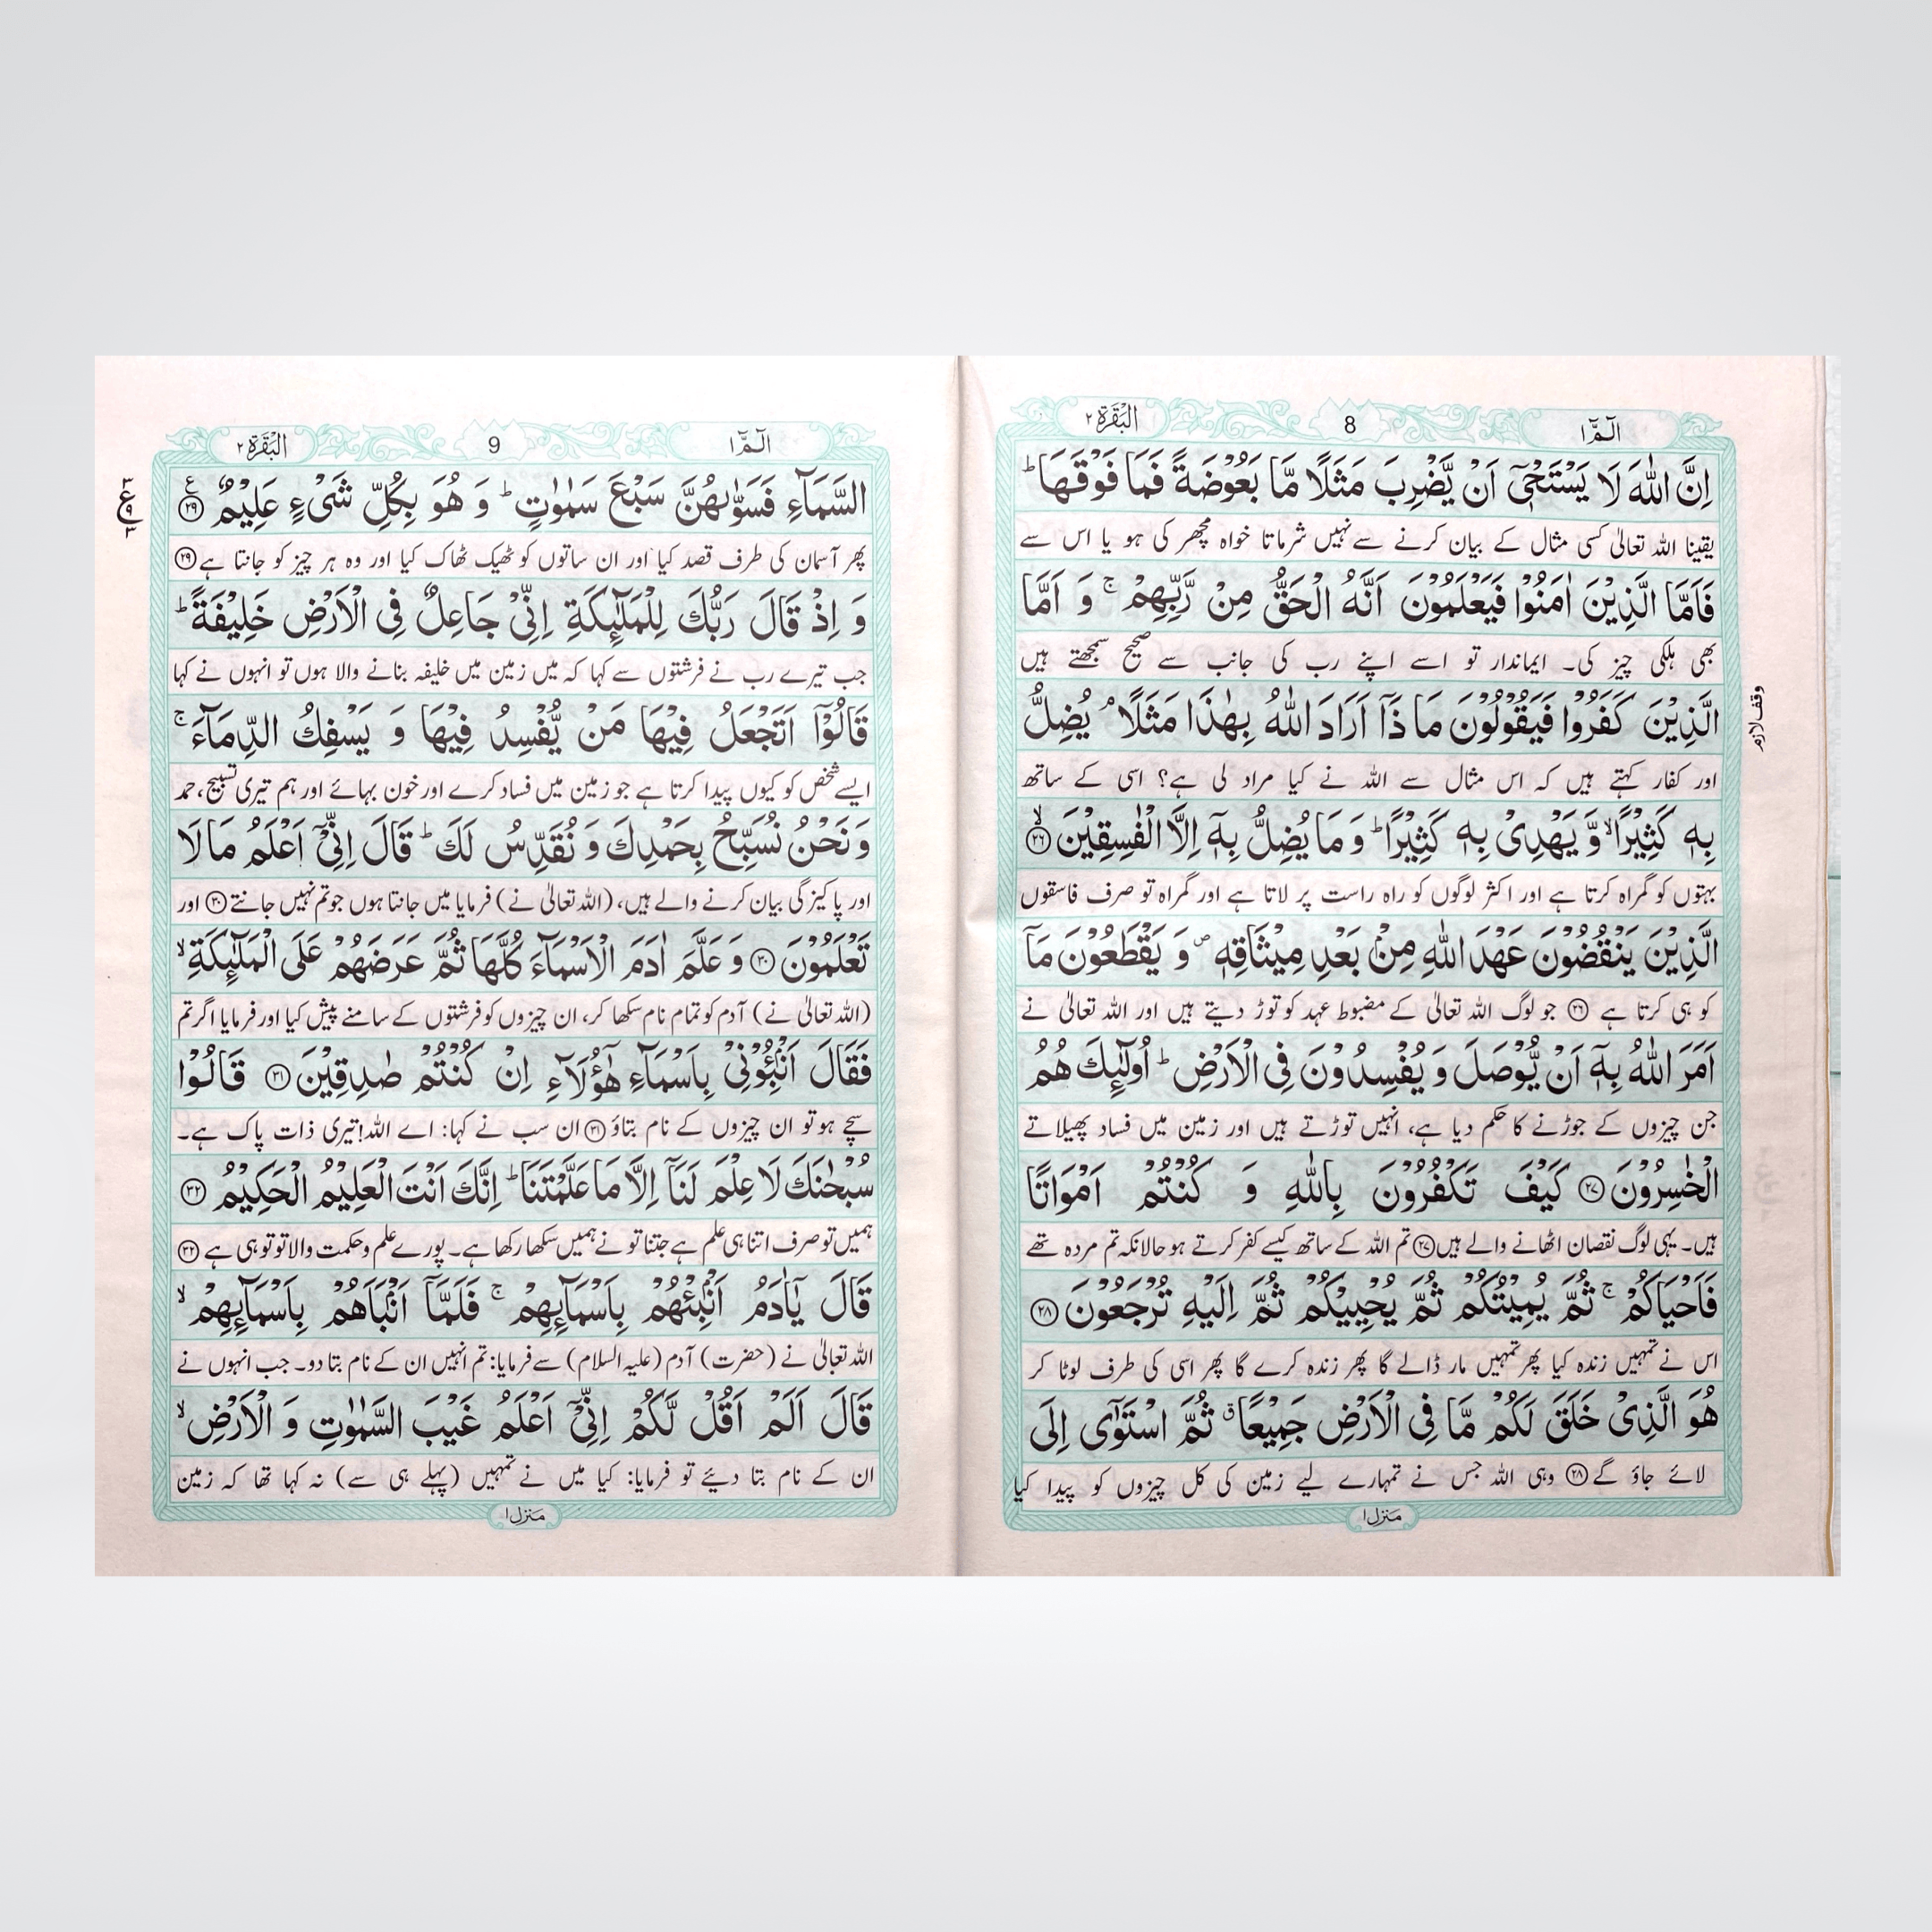 الٓمّٓ ۱
8
الْبَقَرَة ۲
اِنَّ اللّٰهَ لَا يَسْتَحْيٖٓ اَنْ يَّضْرِبَ مَثَلًا مَّا بَعُوْضَةً فَمَا فَوْقَهَا ؕ
یقینا اللہ تعالیٰ کسی مثال کے بیان کرنے سے نہیں شرماتا خواہ مچھر کی ہو یا اس سے
فَاَمَّا الَّذِيْنَ اٰمَنُوْا فَيَعْلَمُوْنَ اَنَّهُ الْحَقُّ مِنْ رَّبِّهِمْ ۚ وَ اَمَّا
بھی ہلکی چیز کی۔ ایماندار تو اسے اپنے رب کی جانب سے صحیح سمجھتے ہیں
الَّذِيْنَ كَفَرُوْا فَيَقُوْلُوْنَ مَا ذَاۤ اَرَادَ اللّٰهُ بِهٰذَا مَثَلًا ۘ يُضِلُّ
وقف لازم
اور کفار کہتے ہیں کہ اس مثال سے اللہ نے کیا مراد لی ہے؟ اسی کے ساتھ
بِهٖ كَثِيْرًا ۙ وَّ يَهْدِيْ بِهٖ كَثِيْرًا ؕ وَ مَا يُضِلُّ بِهٖۤ اِلَّا الْفٰسِقِيْنَ ۙ ۲۶
بہتوں کو گمراہ کرتا ہے اور اکثر لوگوں کو راہ راست پر لاتا ہے اور گمراہ تو صرف فاسقوں
الَّذِيْنَ يَنْقُضُوْنَ عَهْدَ اللّٰهِ مِنْۢ بَعْدِ مِيْثَاقِهٖ ۪ وَ يَقْطَعُوْنَ مَاۤ
کو ہی کرتا ہے ۲۶ جو لوگ اللہ تعالیٰ کے مضبوط عہد کو توڑ دیتے ہیں اور اللہ تعالیٰ نے
اَمَرَ اللّٰهُ بِهٖۤ اَنْ يُّوْصَلَ وَ يُفْسِدُوْنَ فِي الْاَرْضِ ؕ اُولٰٓئِكَ هُمُ
جن چیزوں کے جوڑنے کا حکم دیا ہے، انہیں توڑتے ہیں اور زمین میں فساد پھیلاتے
الْخٰسِرُوْنَ ۲۷ كَيْفَ تَكْفُرُوْنَ بِاللّٰهِ وَ كُنْتُمْ اَمْوَاتًا
ہیں۔ یہی لوگ نقصان اٹھانے والے ہیں ۲۷ تم اللہ کے ساتھ کیسے کفر کرتے ہو حالانکہ تم مردہ تھے
فَاَحْيَاكُمْ ۚ ثُمَّ يُمِيْتُكُمْ ثُمَّ يُحْيِيْكُمْ ثُمَّ اِلَيْهِ تُرْجَعُوْنَ ۲۸
اس نے تمہیں زندہ کیا پھر تمہیں مار ڈالے گا پھر زندہ کرے گا پھر اسی کی طرف لوٹا کر
هُوَ الَّذِيْ خَلَقَ لَكُمْ مَّا فِي الْاَرْضِ جَمِيْعًا ۗ ثُمَّ اسْتَوٰۤى اِلَى
لائے جاؤ گے ۲۸ وہی اللہ جس نے تمہارے لیے زمین کی کل چیزوں کو پیدا کیا
منزل ۱
الٓمّٓ ۱
9
الْبَقَرَة ۲
السَّمَآءِ فَسَوّٰىهُنَّ سَبْعَ سَمٰوٰتٍ ؕ وَ هُوَ بِكُلِّ شَيْءٍ عَلِيْمٌ ۲۹ ع
۳ ع ۹ ۳
پھر آسمان کی طرف قصد کیا اور ان ساتوں کو ٹھیک ٹھاک کیا اور وہ ہر چیز کو جانتا ہے ۲۹
وَ اِذْ قَالَ رَبُّكَ لِلْمَلٰٓئِكَةِ اِنِّيْ جَاعِلٌ فِي الْاَرْضِ خَلِيْفَةً ؕ
جب تیرے رب نے فرشتوں سے کہا کہ میں زمین میں خلیفہ بنانے والا ہوں تو انہوں نے کہا
قَالُوْۤا اَتَجْعَلُ فِيْهَا مَنْ يُّفْسِدُ فِيْهَا وَ يَسْفِكُ الدِّمَآءَ ۚ
ایسے شخص کو کیوں پیدا کرتا ہے جو زمین میں فساد کرے اور خون بہائے اور ہم تیری تسبیح، حمد
وَ نَحْنُ نُسَبِّحُ بِحَمْدِكَ وَ نُقَدِّسُ لَكَ ؕ قَالَ اِنِّيْۤ اَعْلَمُ مَا لَا
اور پاکیزگی بیان کرنے والے ہیں، (اللہ تعالیٰ نے) فرمایا میں جانتا ہوں جو تم نہیں جانتے ۳۰ اور
تَعْلَمُوْنَ ۳۰ وَ عَلَّمَ اٰدَمَ الْاَسْمَآءَ كُلَّهَا ثُمَّ عَرَضَهُمْ عَلَى الْمَلٰٓئِكَةِ ۙ
(اللہ تعالیٰ نے) آدم کو تمام نام سکھا کر، ان چیزوں کو فرشتوں کے سامنے پیش کیا اور فرمایا اگر تم
فَقَالَ اَنْۢبِـُٔوْنِيْ بِاَسْمَآءِ هٰۤؤُلَآءِ اِنْ كُنْتُمْ صٰدِقِيْنَ ۳۱ قَالُوْا
سچے ہو تو ان چیزوں کے نام بتاؤ ۳۱ ان سب نے کہا: اے اللہ! تیری ذات پاک ہے۔
سُبْحٰنَكَ لَا عِلْمَ لَنَاۤ اِلَّا مَا عَلَّمْتَنَا ؕ اِنَّكَ اَنْتَ الْعَلِيْمُ الْحَكِيْمُ ۳۲
ہمیں تو صرف اتنا ہی علم ہے جتنا تو نے ہمیں سکھا رکھا ہے۔ پورے علم و حکمت والا تو تو ہی ہے ۳۲
قَالَ يٰۤاٰدَمُ اَنْۢبِئْهُمْ بِاَسْمَآئِهِمْ ۚ فَلَمَّاۤ اَنْۢبَاَهُمْ بِاَسْمَآئِهِمْ ۙ
اللہ تعالیٰ نے (حضرت) آدم (علیہ السلام) سے فرمایا: تم انہیں ان کے نام بتا دو۔ جب انہوں نے
قَالَ اَلَمْ اَقُلْ لَّكُمْ اِنِّيْۤ اَعْلَمُ غَيْبَ السَّمٰوٰتِ وَ الْاَرْضِ ۙ
ان کے نام بتا دیئے تو فرمایا: کیا میں نے تمہیں (پہلے ہی سے) نہ کہا تھا کہ زمین
منزل ۱